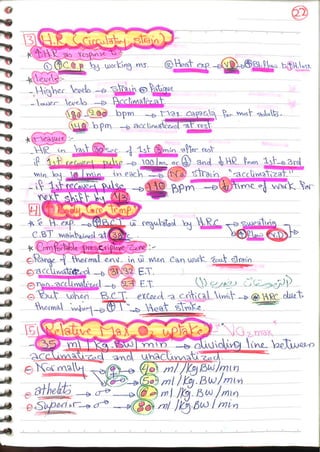 22
3 HR (Circulatory strain)
↑HR as response to
① ↑C.O.P by working ms. ② Heat exp. → VD → ↑Bl. flow
Levels
- Higher levels → Strain & Fatigue
- lower levels → Acclimatizat.
180 - 200 bpm → Max capacity for most adults.
140 bpm → acclimatized at rest
Measure
HR in last 30 sec of 1st 3 min after rest
if 1st recovery pulse → 110/m. or ↓ and ↓ HR from 1st → 3rd
min by 10/min in each → No strain "acclimatizat."
- if 1st recovery pulse → 110 BPM → ↓ time of work for
next shift by 1/3
4 Body Core Temp
* e H. exp. → ↑B.C.T is regulated by H.R.C → sweating
C.B.T maintained at 38°c
* Comfortable prescriptive zone :-
Range of thermal env. in w men can work out strain
acclimatized → 31-32 E.T.
non acclimatized → 27 E.T.
but when B.C.T. exceed a critical limit → HRC
thermal injury → Heat stroke.
5 Relative Max O2 uptake VO2 max
35 ml / Kg. BW / min → dividing line between
acclimatized and unacclimatized
Normally → ♀ → 40 ml / Kg. BW/min
♂ → 50 ml / Kg. BW/min
athelits → ♂ → 60 ml / Kg. BW/min
Superior → ♂ → 80 ml / Kg. BW/min